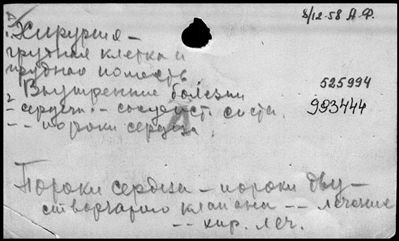 8/12-58 А.Ф.
1. Хирургия -
грудная клетка и
грудная полость
Внутренние болезни
525994
2 сердечн. - сосудист. систа.
993444
-- пороки сердца.
Пороки сердца - пороки дву-
створчатого клапана -- лечение
-- хир. леч.